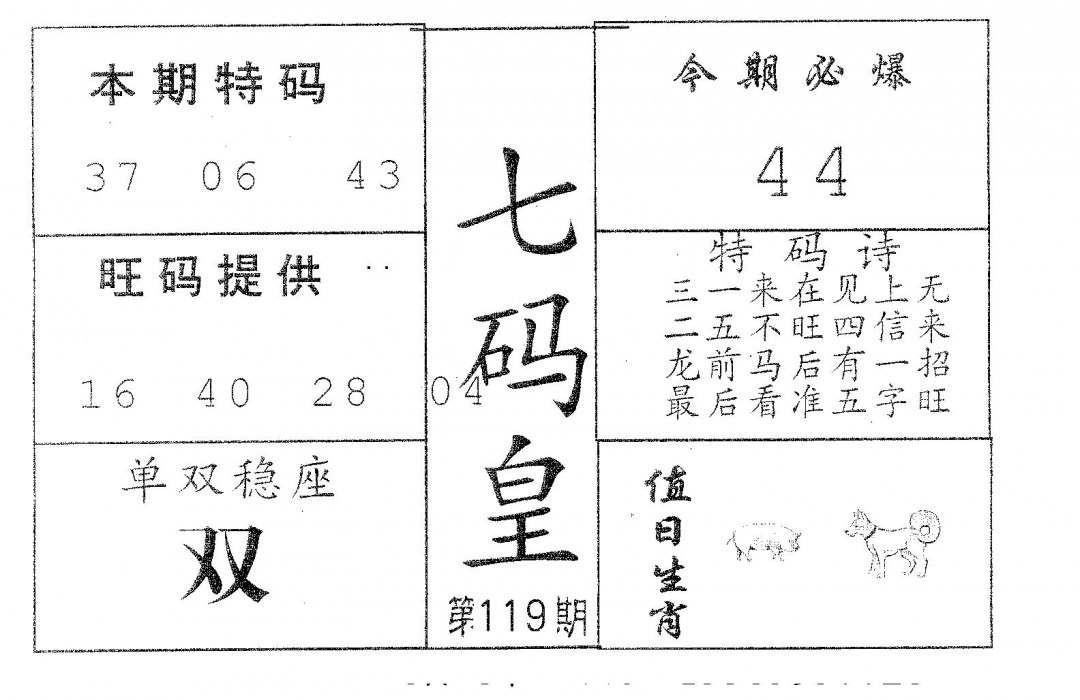 本期特码
37 06 43
旺码提供 ··
16 40 28 04
单双稳座
双
七码皇
第119期
今期必爆
44
特码诗
三一来在见上无
二五不旺四信来
龙前马后有一招
最后看准五字旺
值日生肖